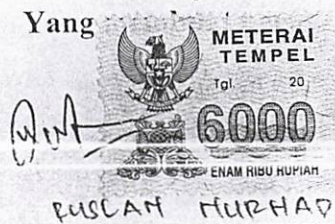 Yang
METERAI
TEMPEL
Tgl. 20
6000
ENAM RIBU RUPIAH
RUSLAN NURHADI